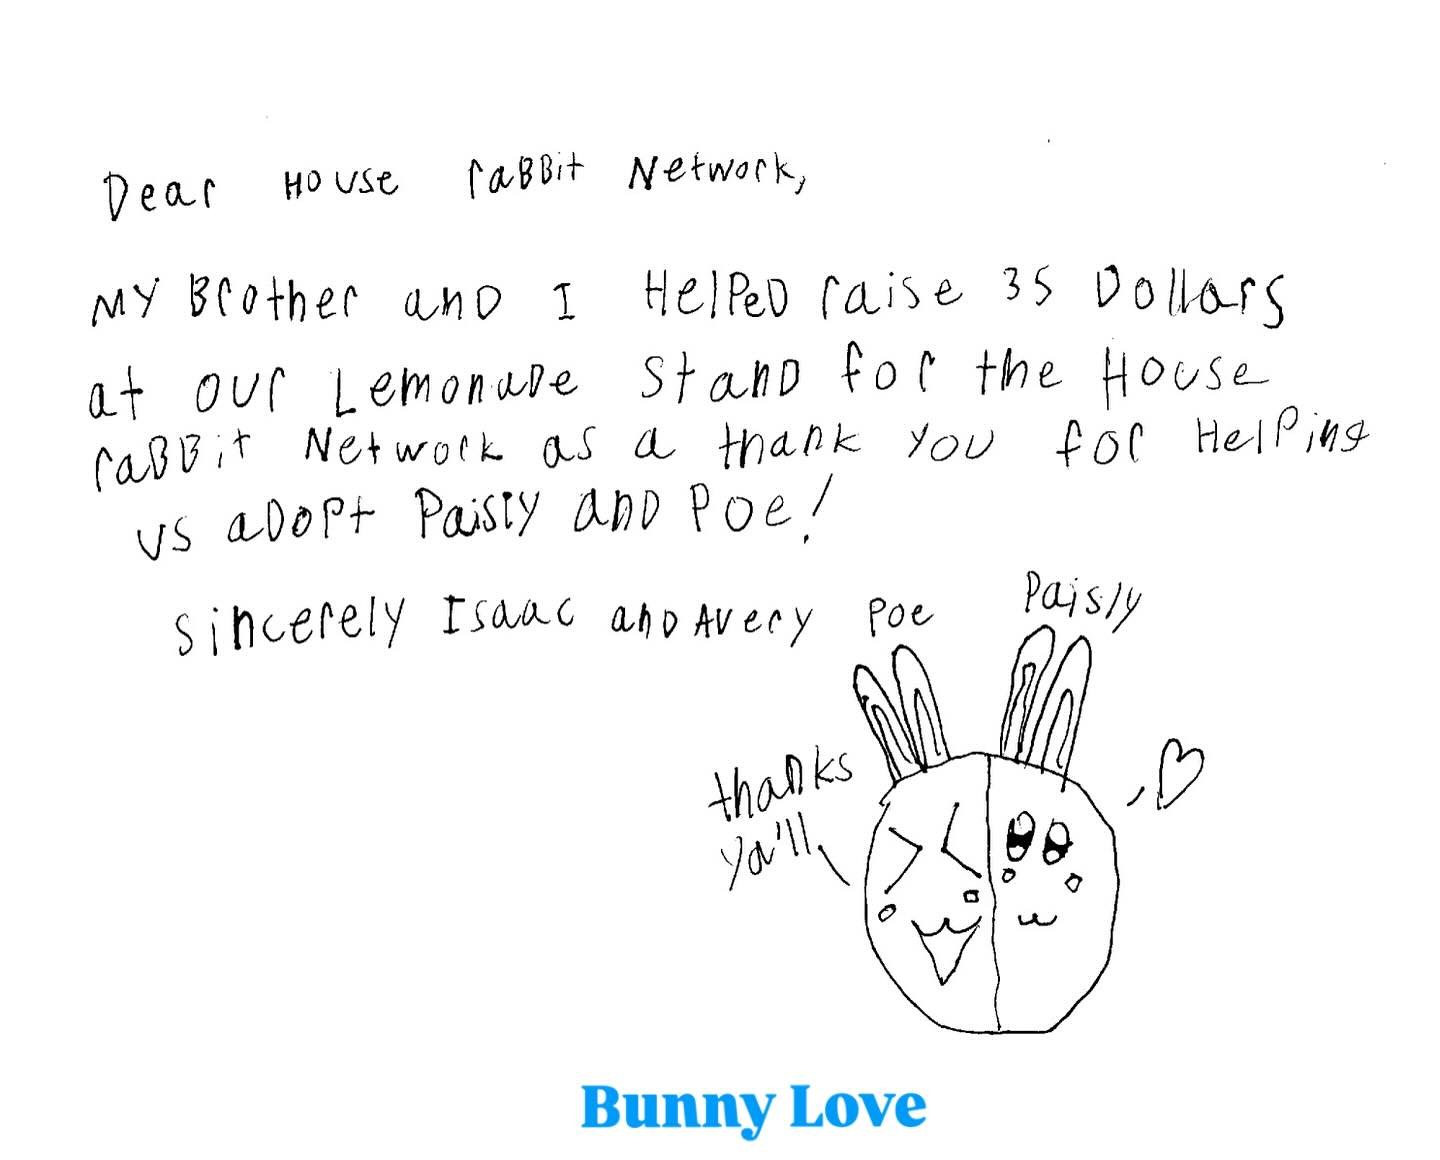 Dear House raBBit Network,
MY Brother and I HelPeD raise 35 Dollars
at our LemonaDe StanD for the House
raBBit Network as a thank you for HelPing
us aDoPt Paisly anD Poe!
sincerely Isaac anD Avery
Poe
Paisly
thanks
Ya'll
Bunny Love